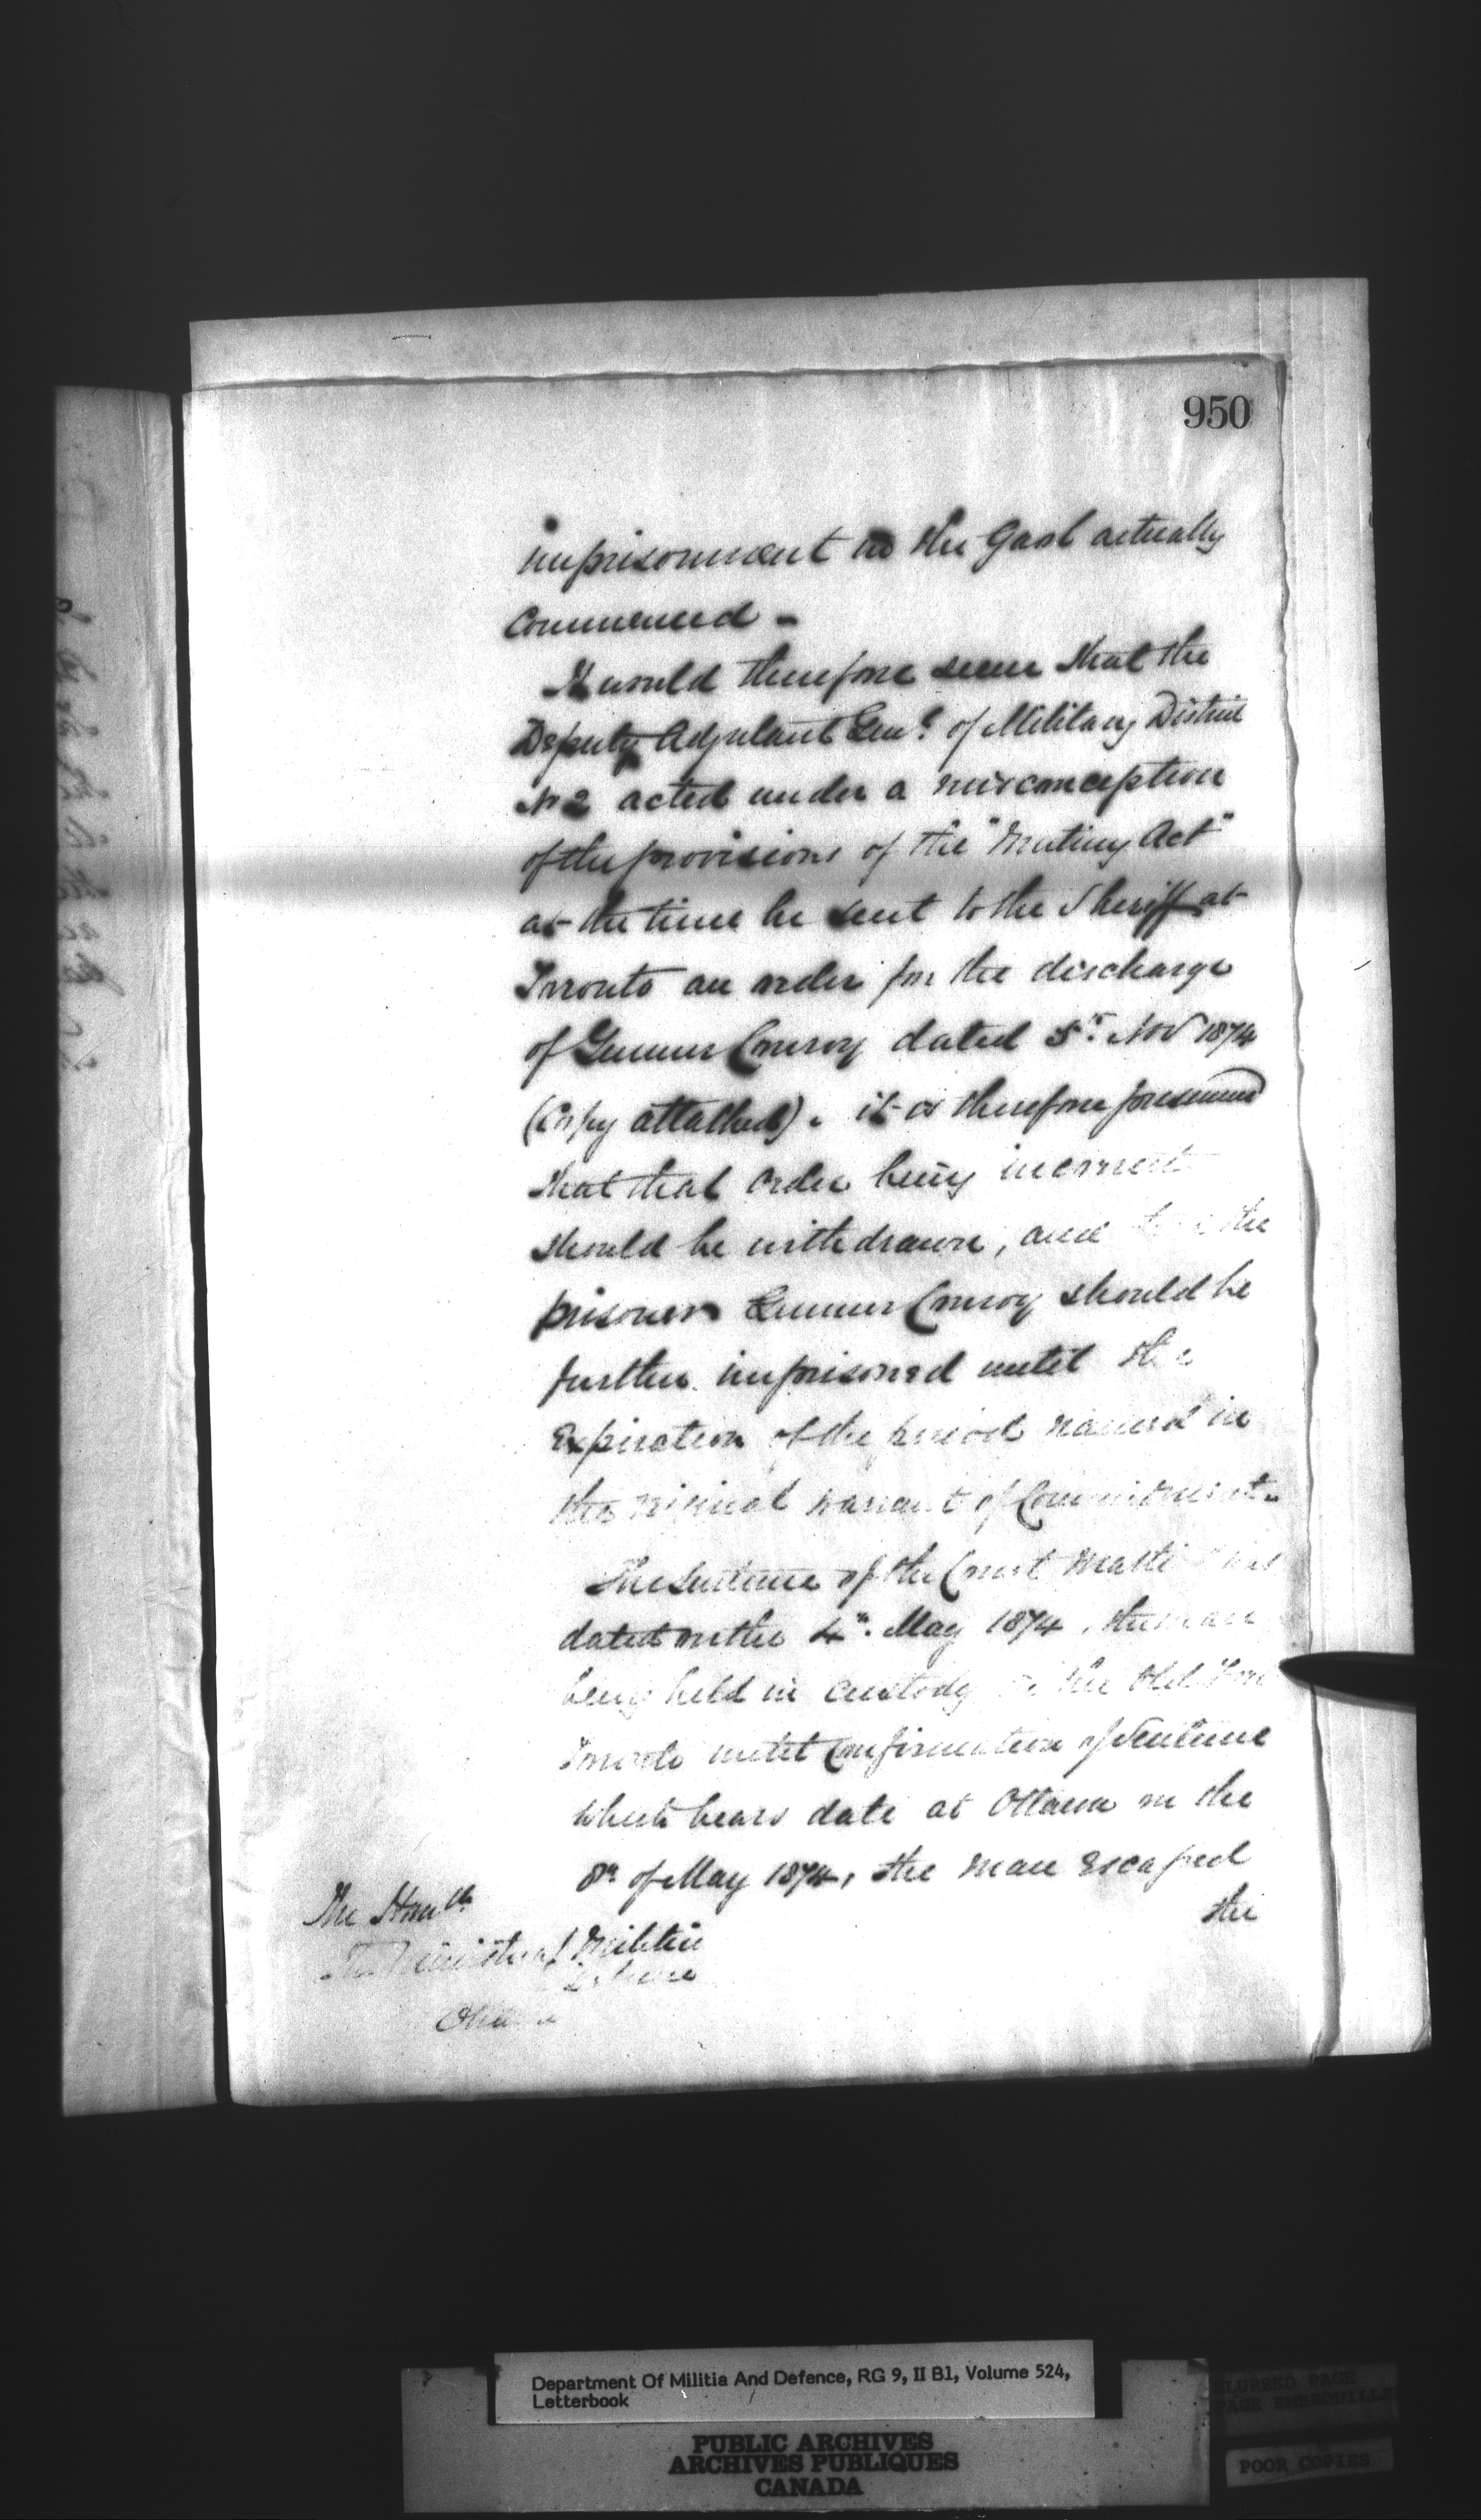 950
imprisonment in the Gaol actually
Commenced -
It would therefore seem that the
Deputy Adjutant Genl. of Military District
No 2 acted under a misconception
of the provisions of the "Mutiny Act"
at the time he sent to the Sheriff at
Toronto an order for the discharge
of Gunner Conroy dated 5th. Nov 1874
(Copy attached). it is therefore presumed
that that order being incorrect
should be withdrawn, and the
prisoner Gunner Conroy should be
further imprisoned until the
Expiration of the period named in
the original warrant of Commitment.
The Sentence of the Court Martial was
dated on the 4th. May 1874, the man
being held in custody in the Old Fort
Toronto until Confirmation of Sentence
which bears date at Ottawa on the
8th of May 1874, the man escaped
the
The Honble
The Minister of Militia
Defence
Ottawa
Department Of Militia And Defence, RG 9, II B1, Volume 524,
Letterbook
PUBLIC ARCHIVES
ARCHIVES PUBLIQUES
CANADA
BLURRED PAGE
PAGE EMBROUILLEE
POOR COPIES